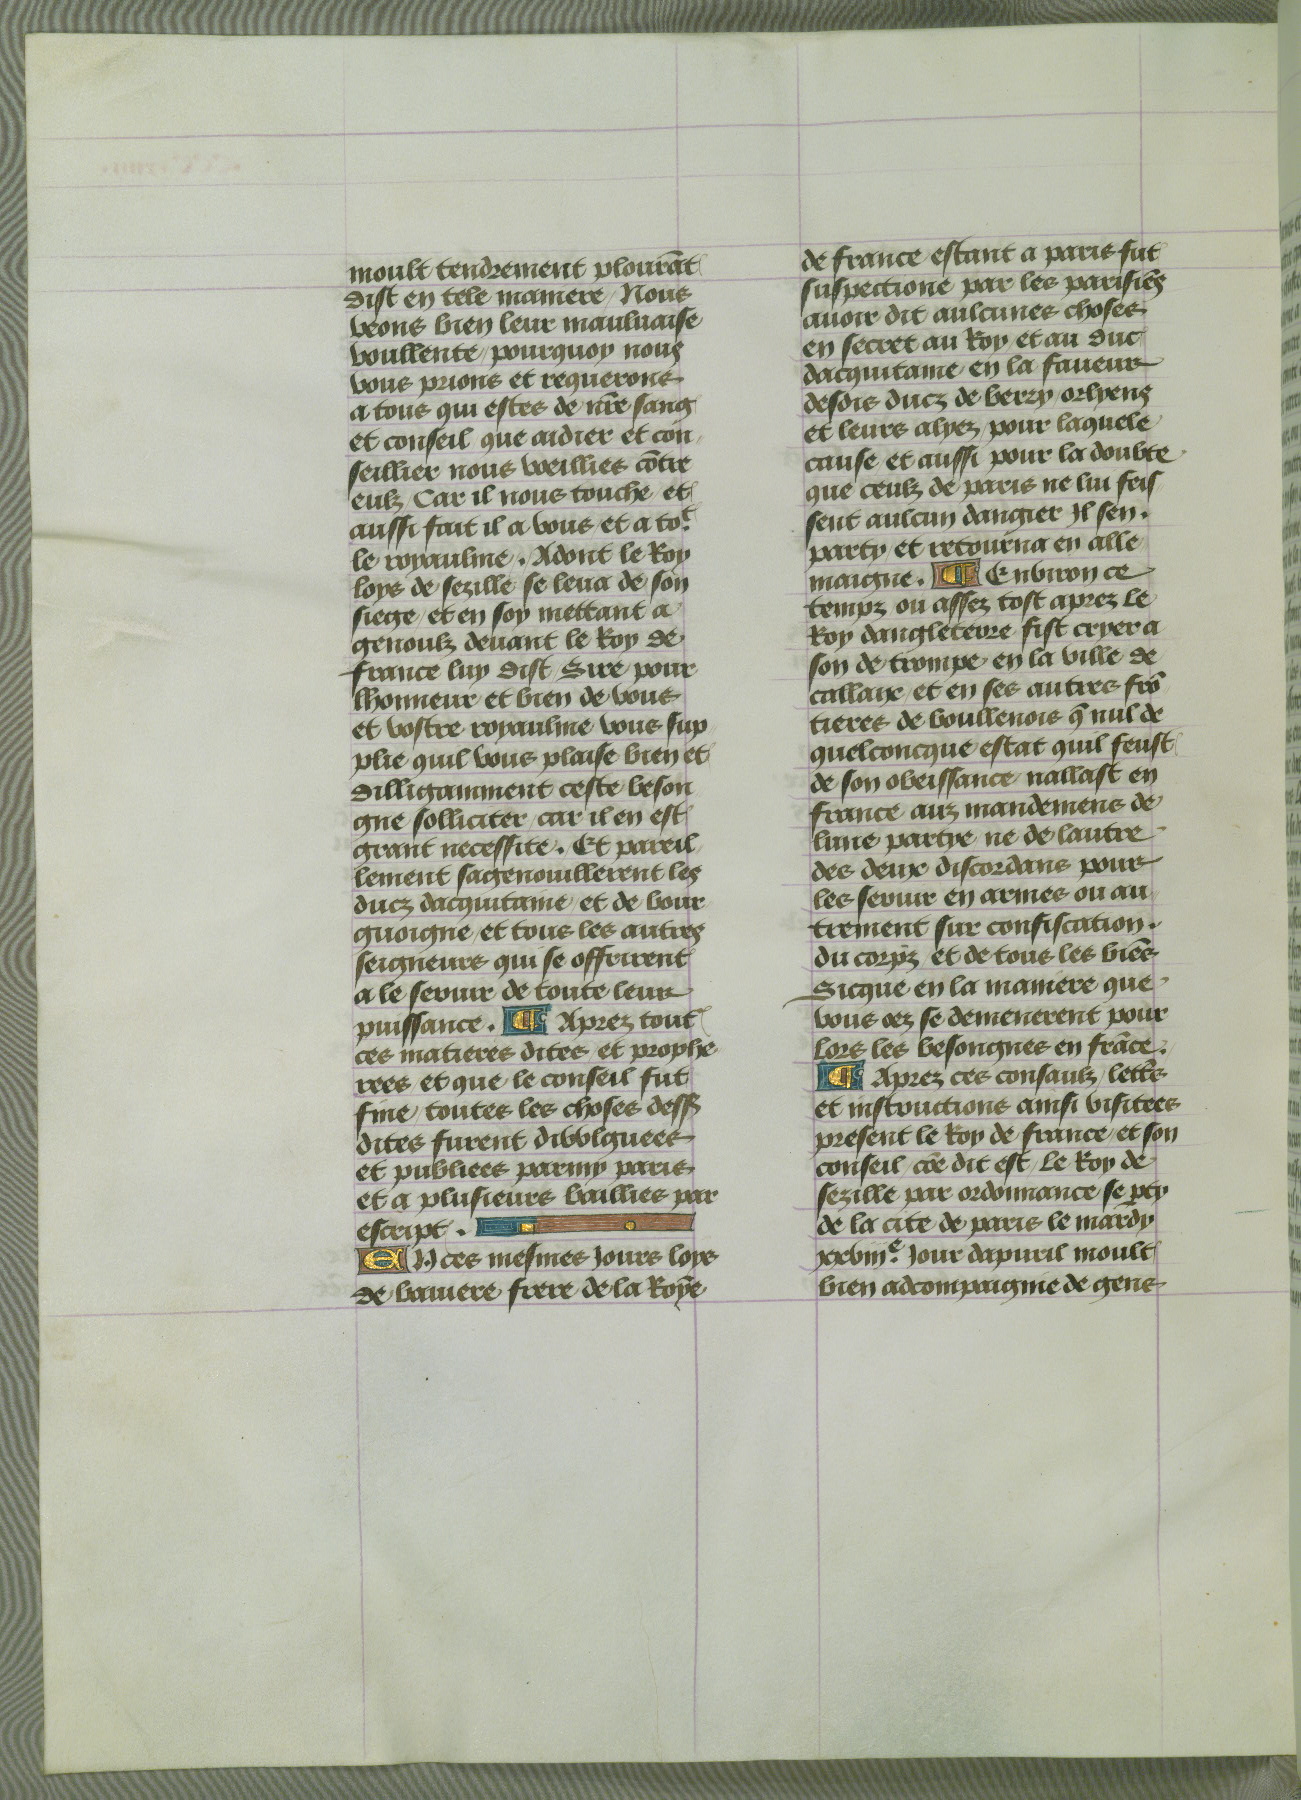 moult tendrement plourãt
dist en tele maniere / Nous
veons bien leur mauluaise
voullente / pourquoy nous
vous prions et requerons
a tous qui estes de nr̃e sang
et conseil que aidier et con
seillier nous voeillies cõtre
eulz / Car il nous touche et
aussi fait il a vous et a toꝰ
le royaulme . Adont le Roy
loys de sezille se leua de son
siege / et en soy mettant a
genoulz deuant le Roy de
france luy dist / Sire pour
lhonneur et bien de vous
et vostre royaulme vous sup
plie quil vous plaise bien et
dilligamment ceste beson
gne solliciter car il en est
grant necessite . Et pareil
lement sagenouillerent les
ducz dacquitaine / et de bour
guoigne / et tous les autres
seigneurs qui se offrirent
a le seruir de toute leur
puissance . ¶ Aprez tout
ces matieres dites et prophe
rees et que le conseil fut
fine / toutes les choses dess9
dites furent divvlguees
et publiees parmy paris
et a plusieurs baillies par
escript .
EN ces mesmes Jours loys
de bauiere frere de la Roỹe
de france estant a paris fut
suspectione par les parisiẽs
auoir dit aulcunes choses
en secret au Roy et au duc
dacquitaine en la faueur
desdis ducz de berry / orlyens
et leurs alyez / pour laquele
cause et aussi pour la doubte
que ceulz de paris ne lui feis
sent aulcun dangier Il sen
party et retourna en alle
maigne . ¶ Enuiron ce
tempz ou assez tost aprez le
Roy dangleterre fist cryer a
son de trompe en la ville de
callaix / et en ses autres frõ
tieres de boullenois q̃ nul de
quelconcque estat quil feust
de son obeissance / nallast en
france auz mandemens de
lune partye ne de lautre
des deux discordans pour
les seruir en armes ou au
trement sur confiscation .
du corpz et de tous les biẽs
Sicque en la maniere que
vous oez se demenerent pour
lors les besongnes en frãce .
¶ Aprez ces consaulz / lettr̃s
et instructions ainsi visitees
present le Roy de france / et son
conseil cõe dit est / Le Roy de
sezille par ordonnance se p̱ty
de la cite de paris le mardy
xxviiiᵉ. Jour dapuril moult
bien adcompaignie de gens